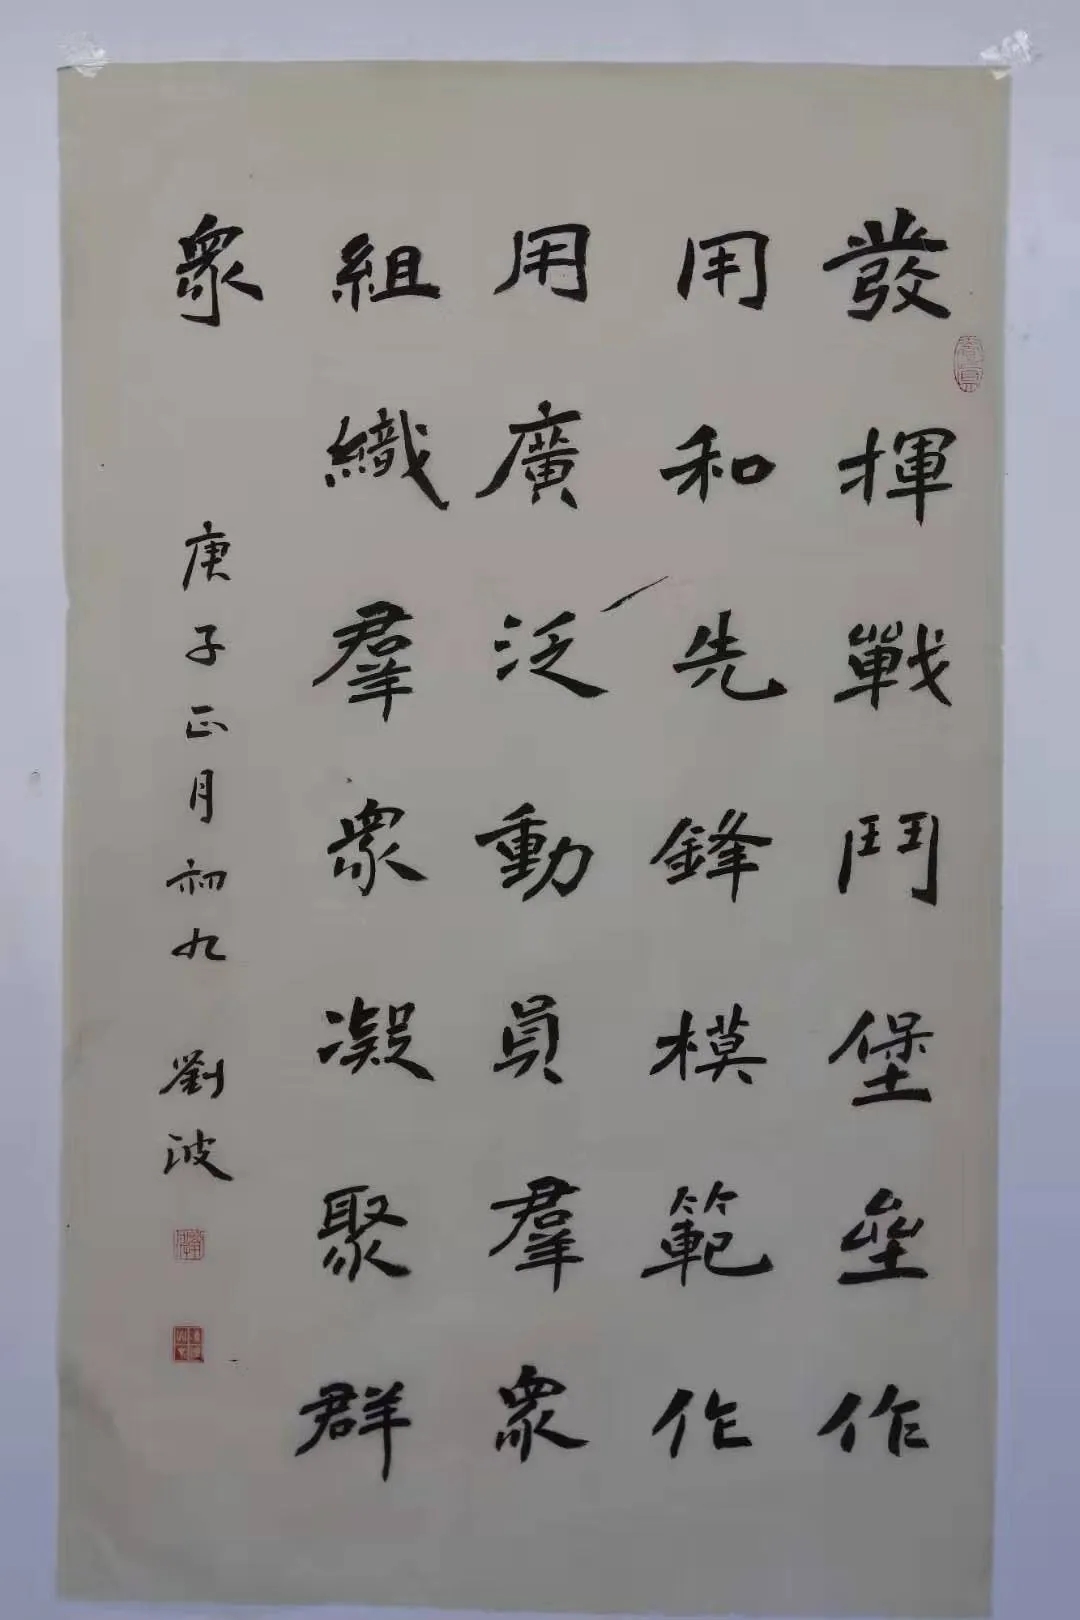 發揮戰鬥堡壘作
用和先鋒模範作
用廣泛動員羣衆
組織羣衆凝聚群
衆
庚子正月初九 劉波